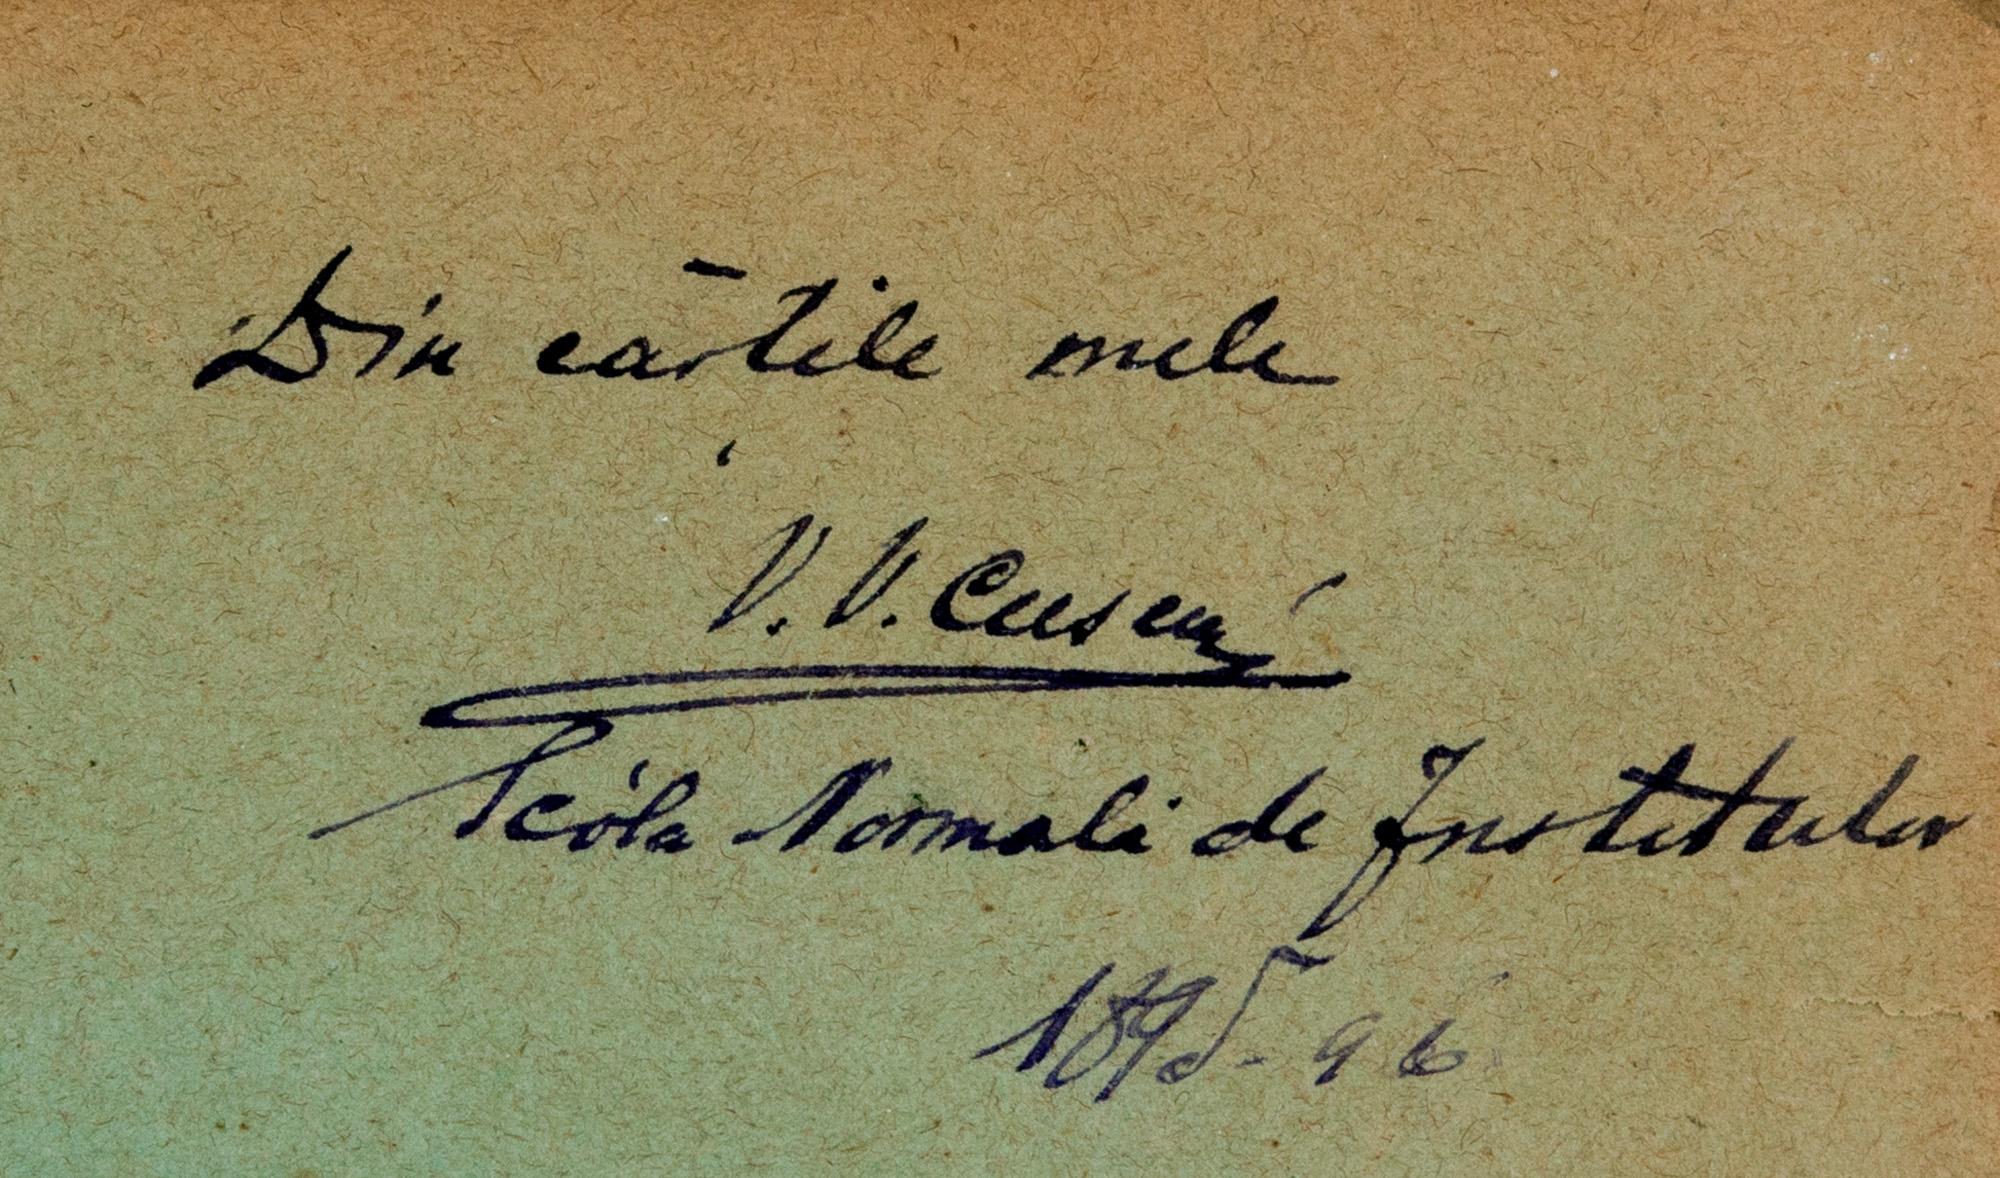 Din cărtile mele
V. V. Cusen
Scóla Normală de Institutor
1895-96